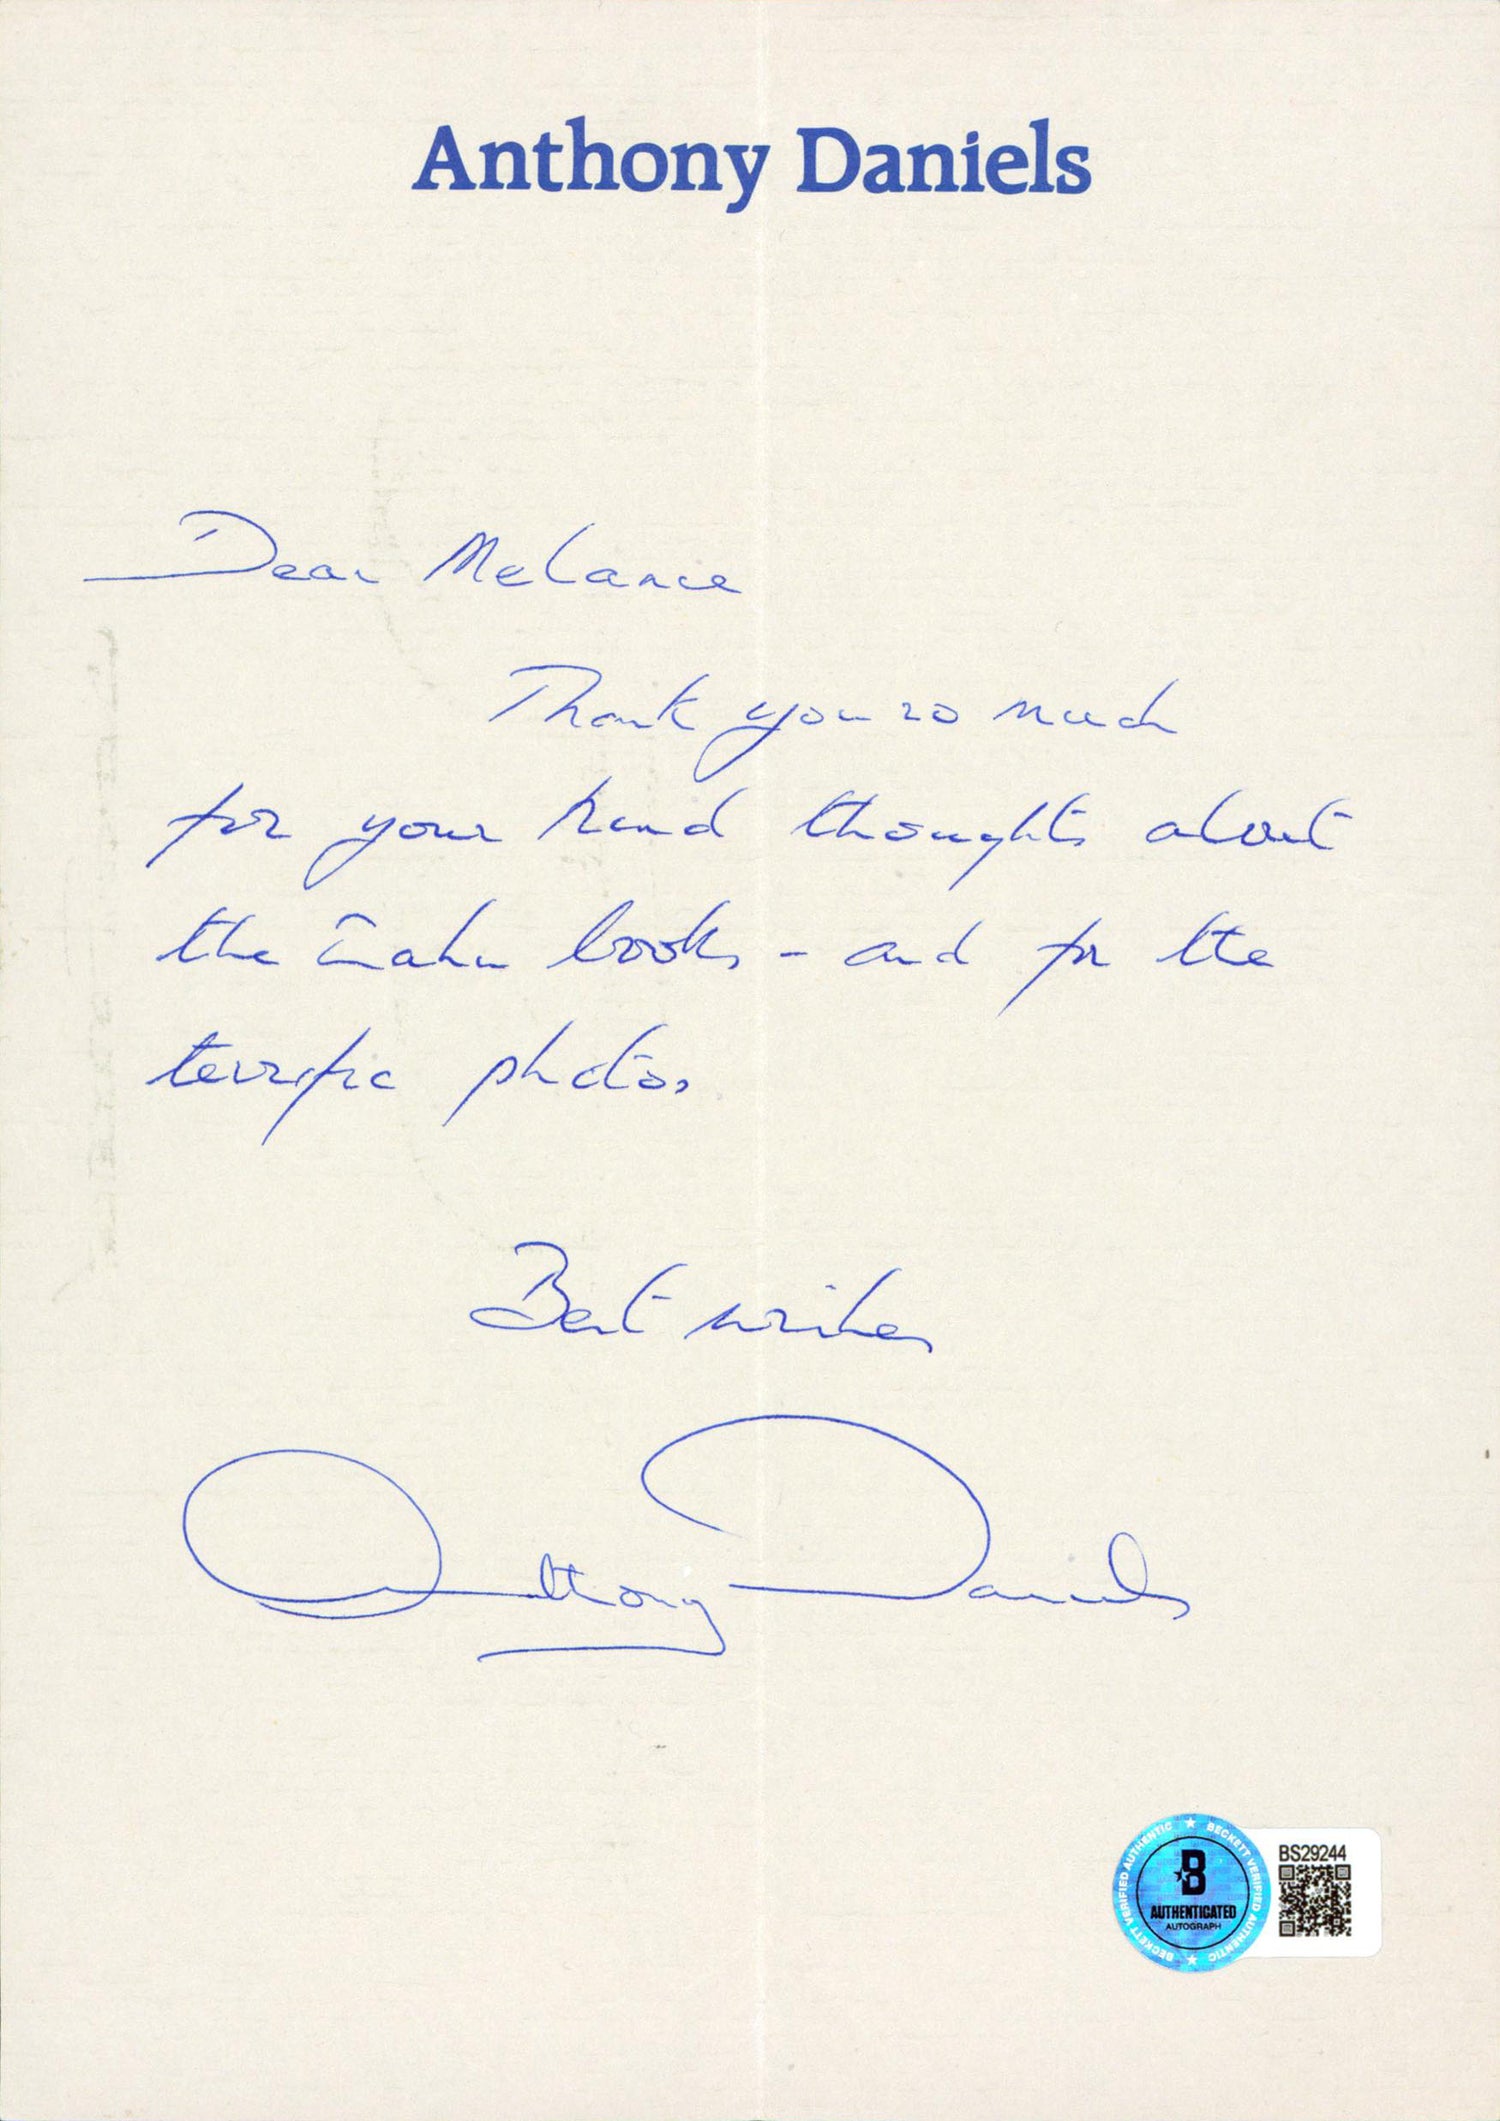 Anthony Daniels
Dear Melanie
Thank you so much
for your kind thoughts about
the Zahn books - and for the
terrific photos.
Best wishes
Anthony Daniels
BECKETT VERIFIED AUTHENTIC ★ BECKETT VERIFIED AUTHENTIC ★
B
AUTHENTICATED
AUTOGRAPH
BS29244